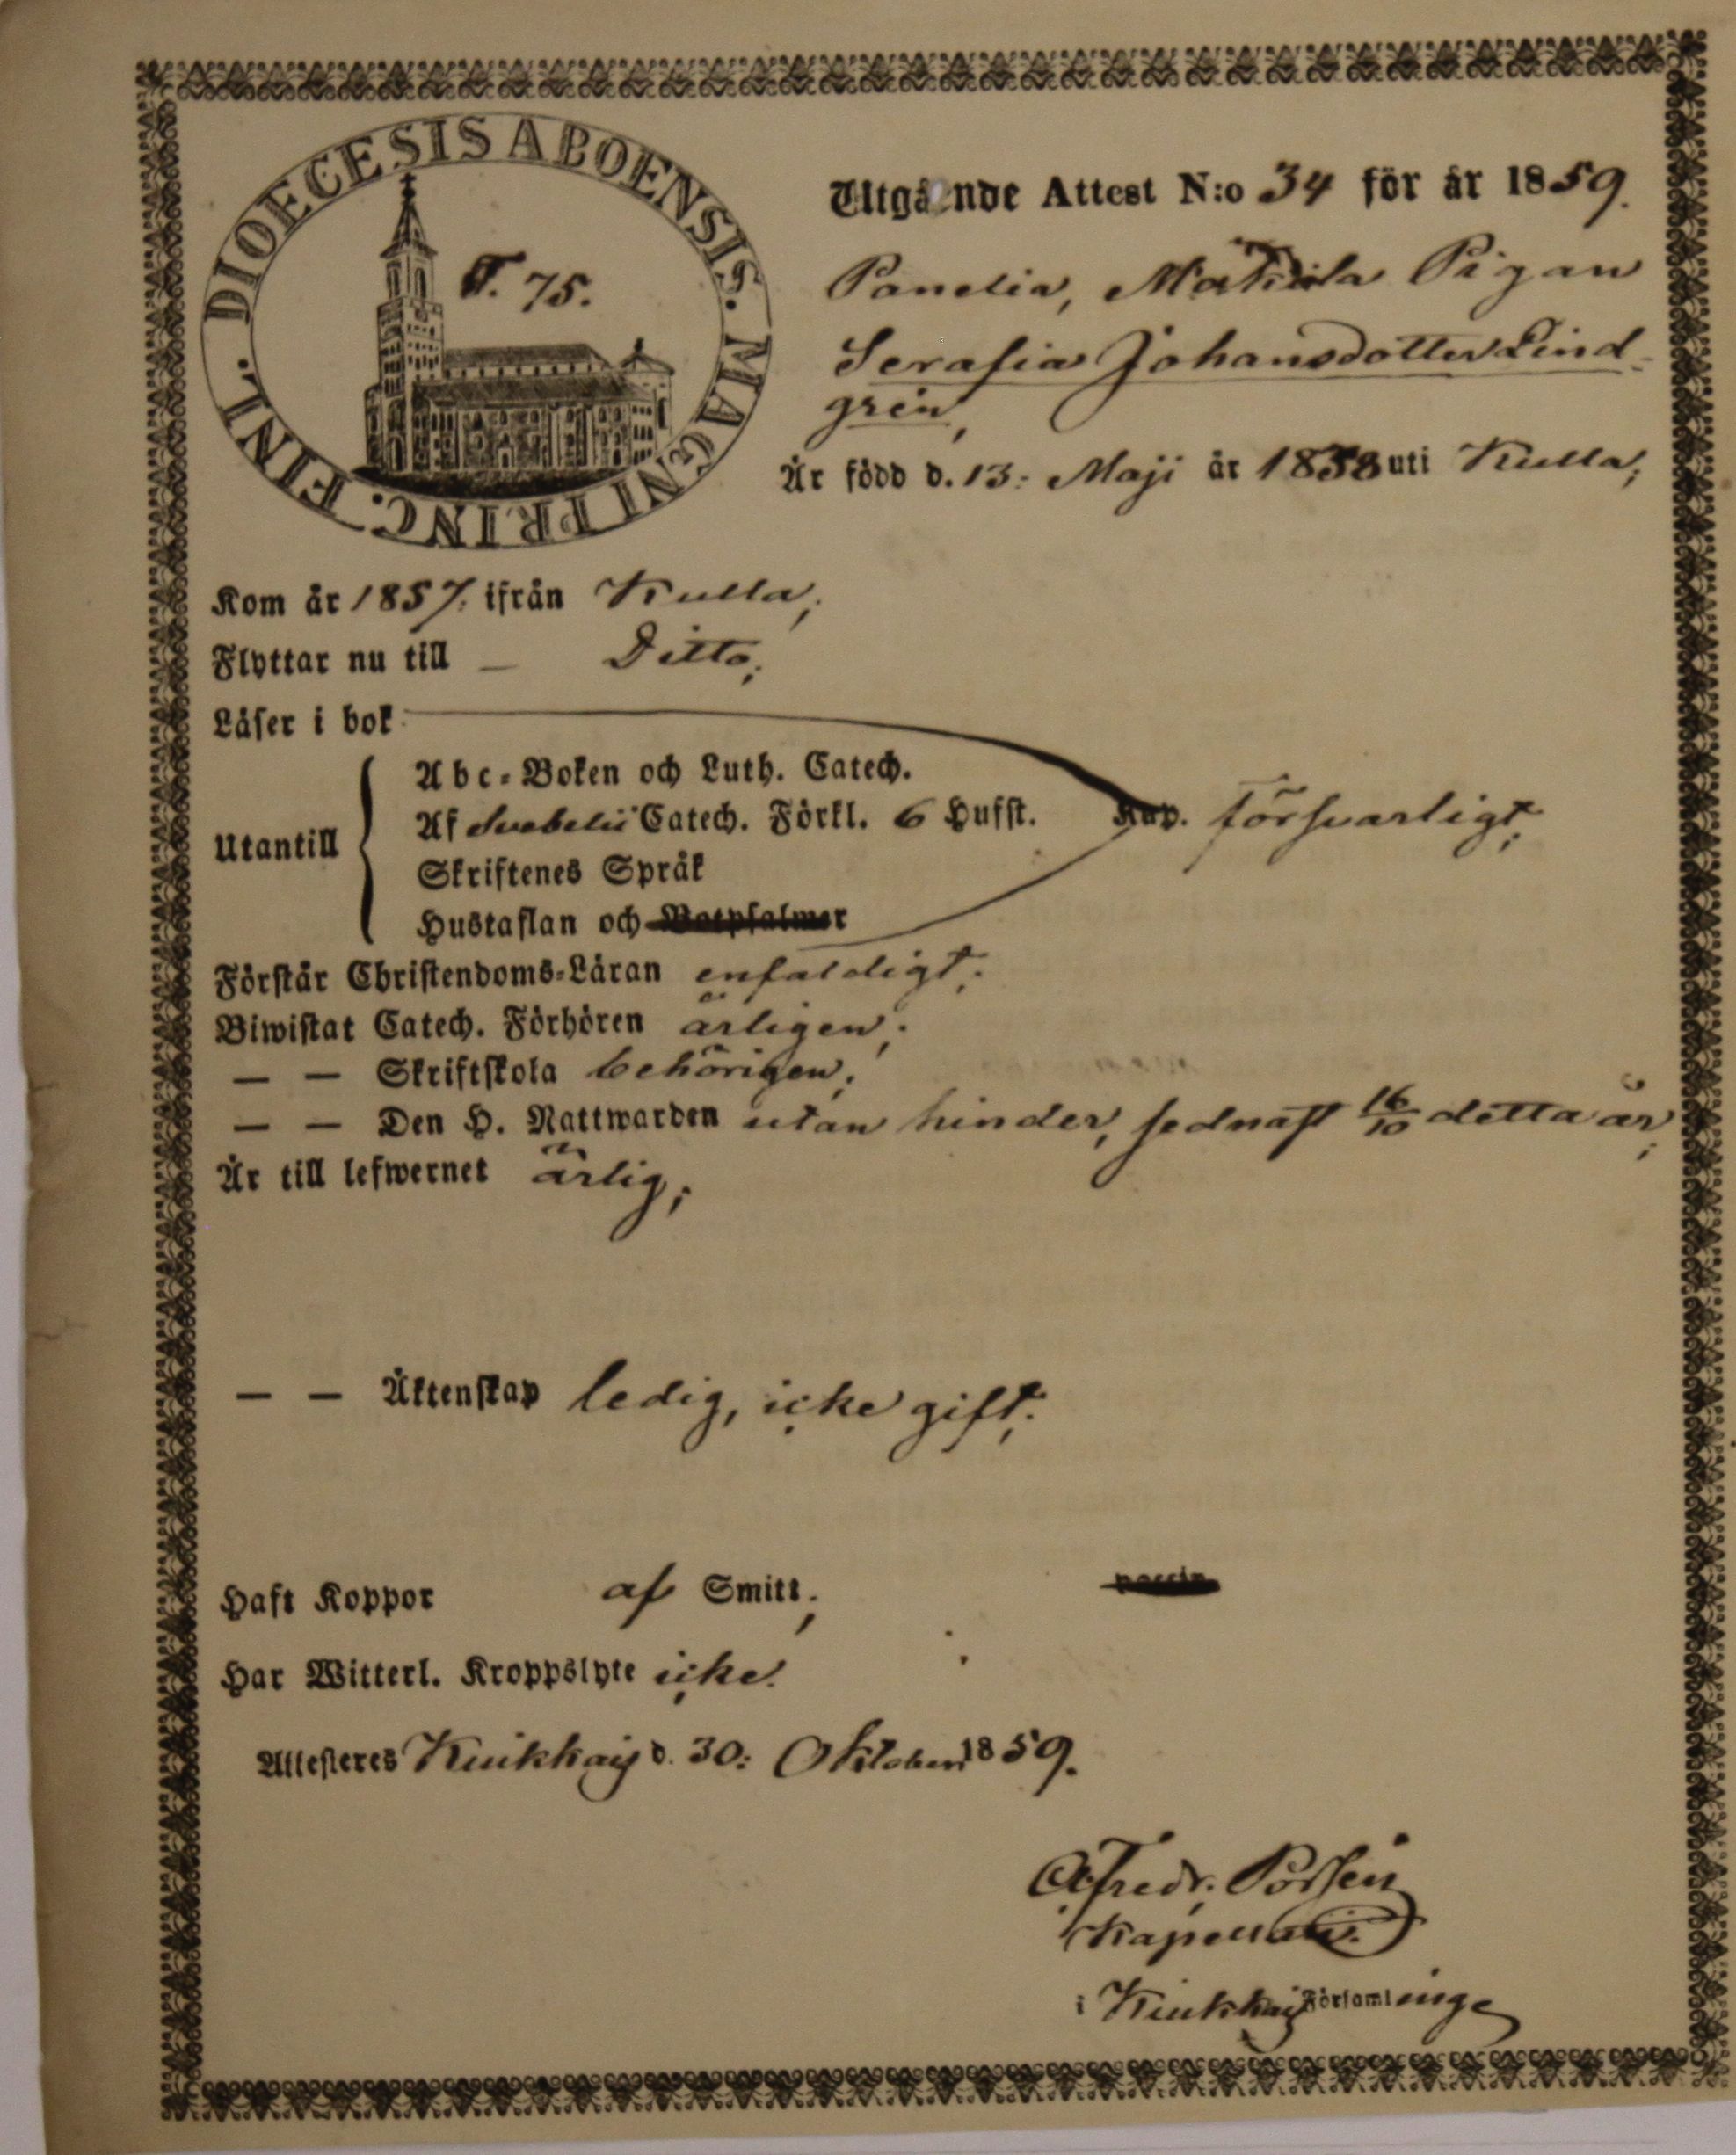 DIOECESIS ABOENSIS. MAGNI PRINC. FINL.
F. 75.
Utgående Attest N:o 34 för år 1859.
Panelia, Mattila Pigan
Serafia Johansdotter Lind-
grén,
Är född d. 13: Maji år 1838 uti Kulla;
Kom år 1857: ifrån Kulla;
Flyttar nu till — Ditto;
Läser i bok
Utantill
Abc-Boken och Luth. Catech.
Af Svebelii Catech. Förkl. 6 Hufst. försvarligt;
Skriftenes Språk
Hustaflan och Botpsalmer
Förstår Christendoms-Läran enfaldigt;
Biwistat Catech. Förhören årligen;
— — Skriftskola behörigen;
— — Den H. Nattwarden utan hinder, sednast 16/10 detta år;
Är till lefwernet ärlig;
— — Äktenskap ledig, icke gift;
Haft Koppor af Smitt;
Har Witterl. Kroppslyte icke.
Attesteras Kiukkais d. 30: Oktober 1859.
Kapellan.
i Kiukkais Församlinge